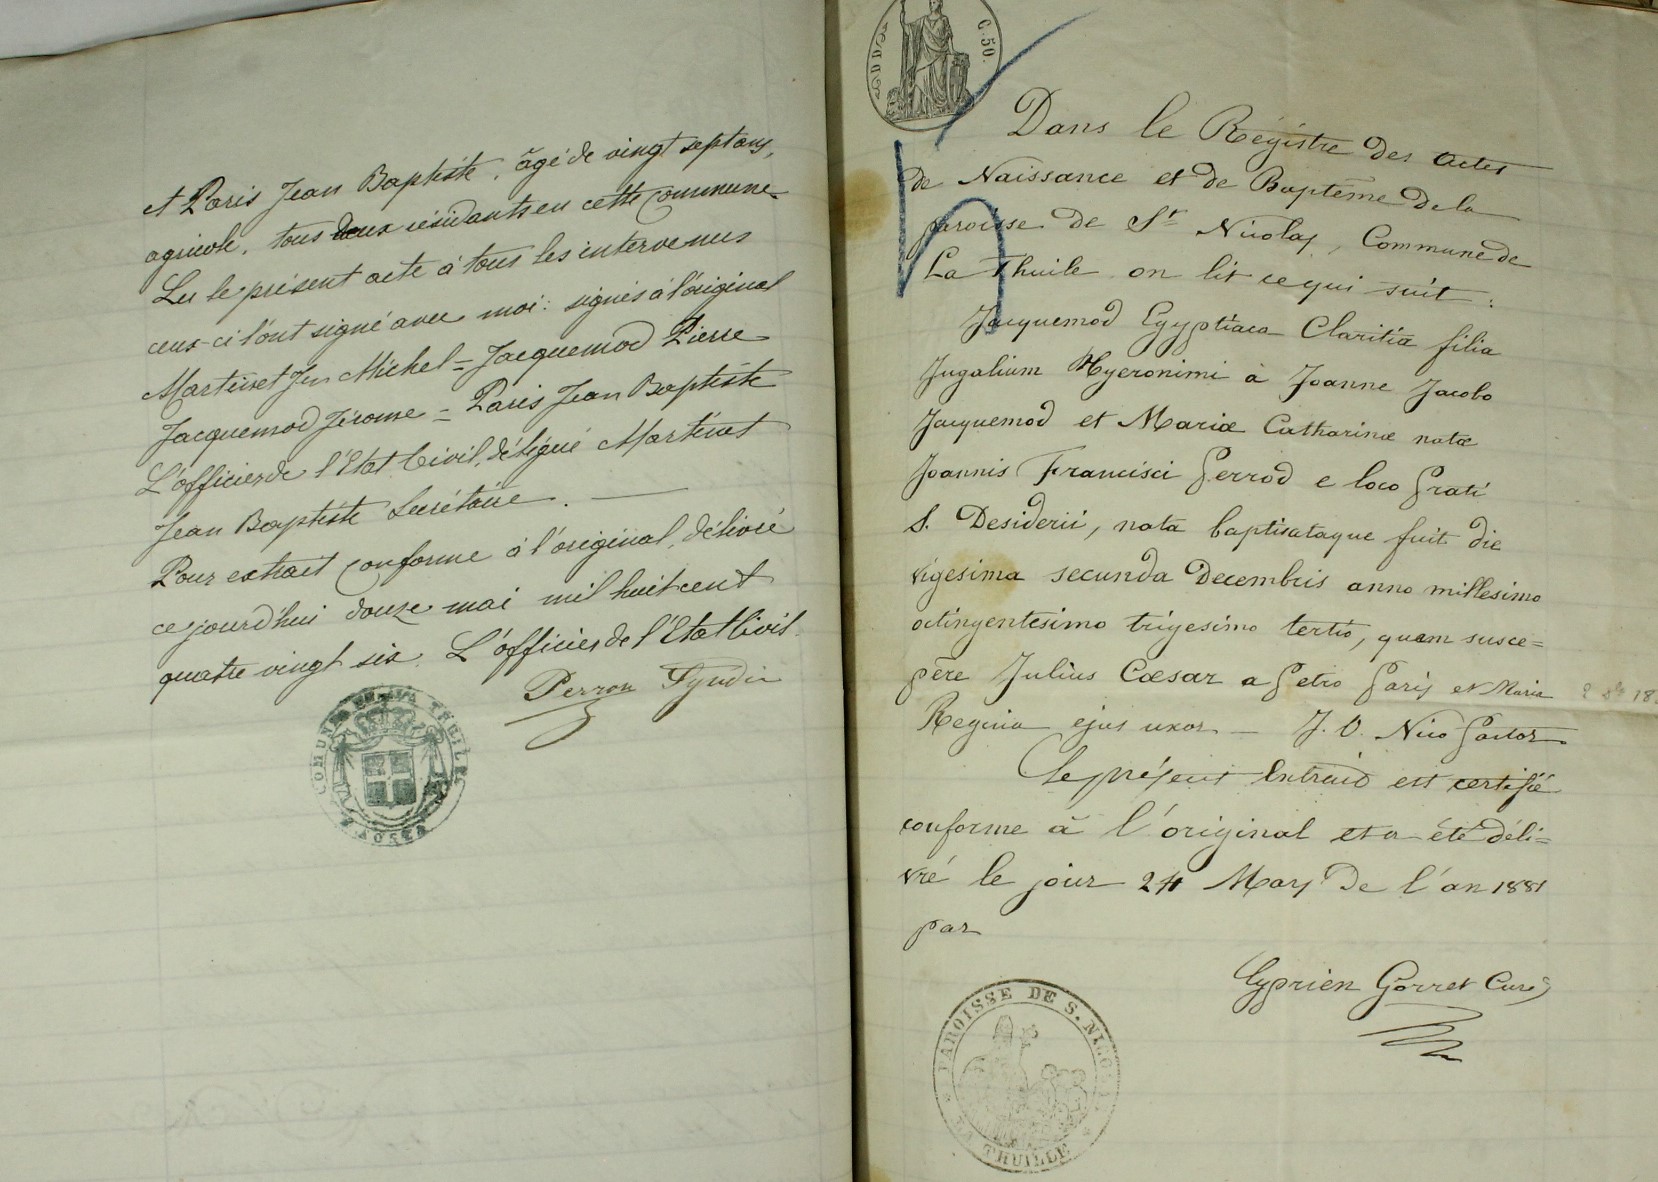 et Paris Jean Baptiste, âgé de vingt sept ans,
agricole, tous deux résidants en cette commune
Lu le présent acte à tous les intervenus
ceux-ci l'ont signé avec moi: signés à l'original
Martinet Jn Michel = Jacquemod Pierre
Jacquemod Jérome = Paris Jean Baptiste
L'officier de l'Etat Civil, délégué Martinet
Jean Baptiste Secrétaire.
Pour extrait conforme à l'original, délivré
ce jourd'hui douze mai mil huit cent
quatre vingt six. L'officier de l'Etat Civil.
Perron Syndic
COMUNE THUILE AOSTA
C. 50.
Dans le Régistre des Actes
de Naissance et de Baptême de la
paroisse de St Nicolas, Commune de
La Thuile on lit ce qui suit:
Jacquemod Egyptiaca Claritia filia
Jugalium Hyeronimi à Joanne Jacobo
Jacquemod et Mariæ Catharinæ natæ
Joannis Francisci Perrod e loco Prati
S. Desiderii, nata baptisataque fuit die
vigesima secunda Decembris anno millesimo
octingentesimo trigesimo tertio, quam susce=
père Julius Cæsar a Petro Paris et Maria
Regina ejus uxor — J. V. Nico Pastor
Le présent Extrait est certifié
conforme à l'original et a été déli=
vré le jour 24 Mars De l'an 1881
par
Cyprien Gorret Curé
PAROISSE DE S. NICOLAS
LA THUILLE